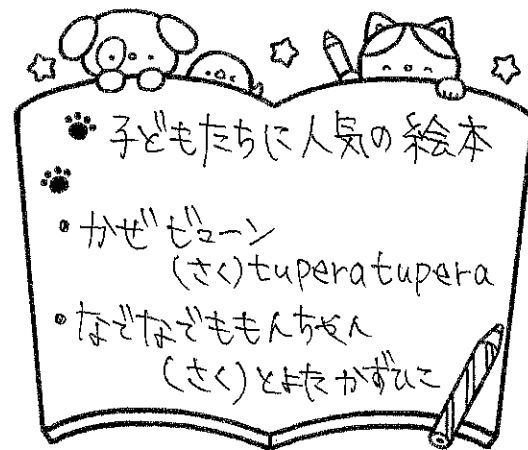 子どもたちに人気の絵本
・かぜビューン
(さく)tuperatupera
・なでなでももんちゃん
(さく)とよたかずひこ